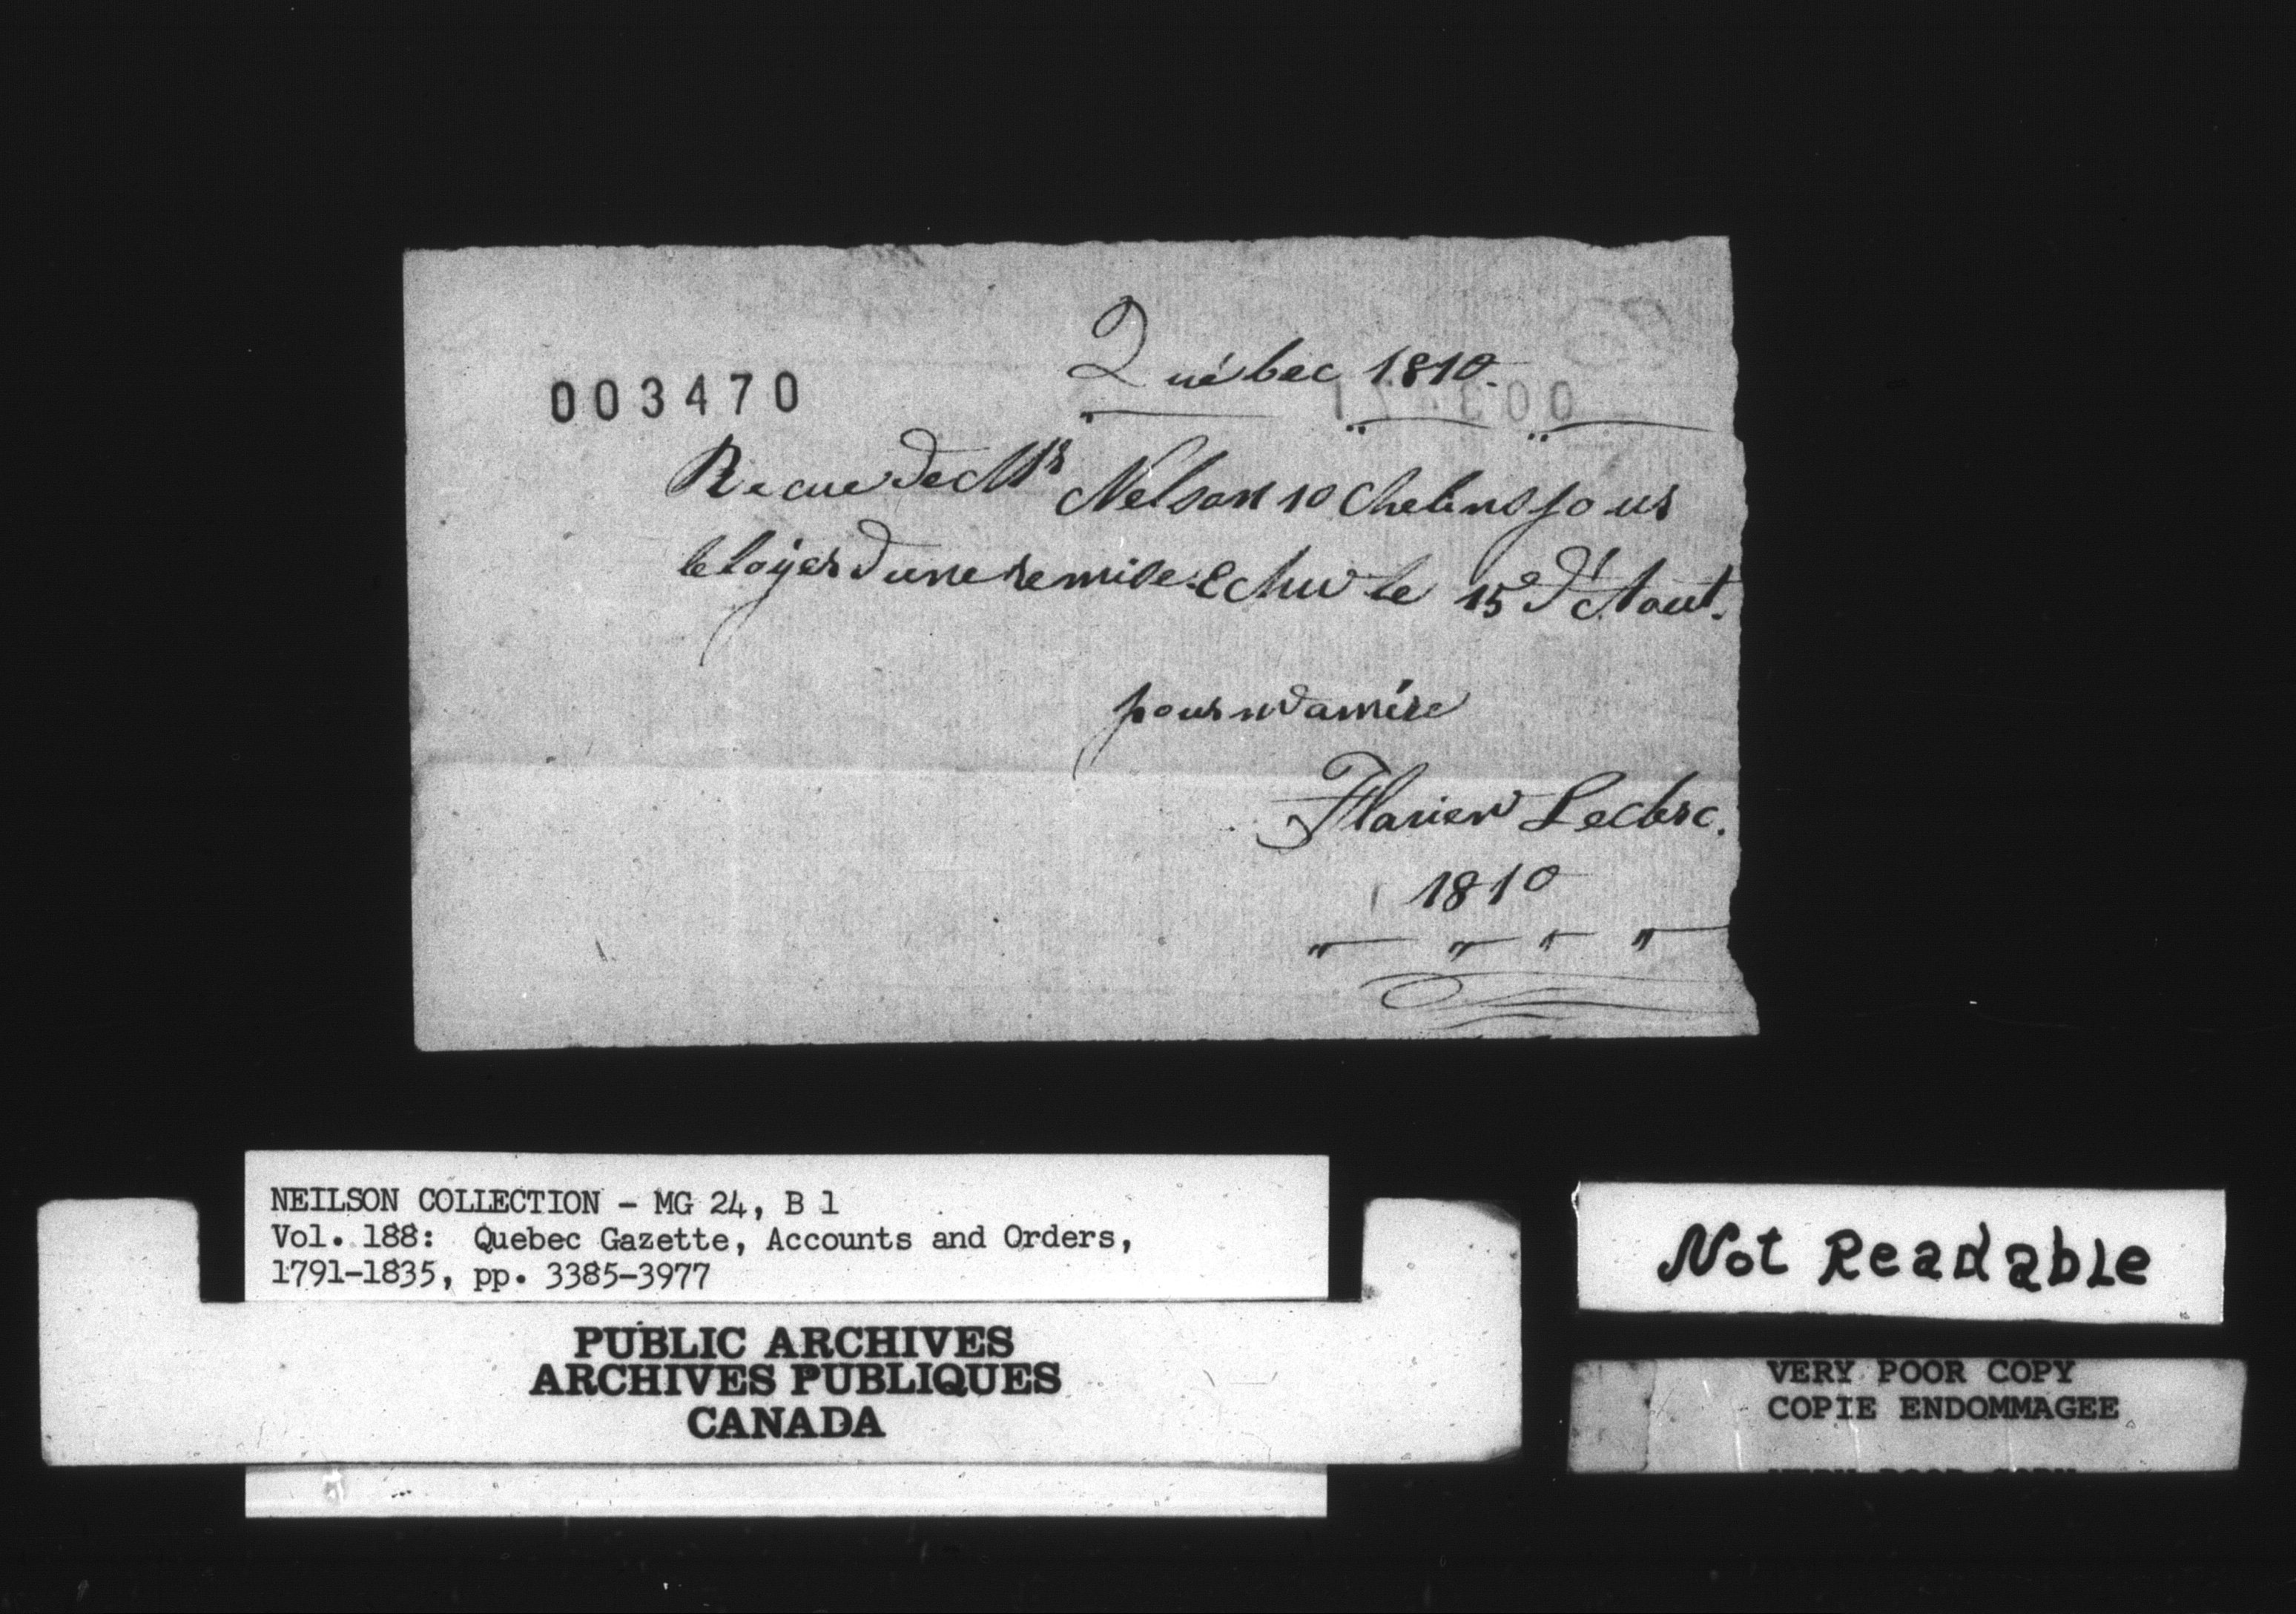 Québec 1810.
003470
Recue de Mr Nelson 10 Chelins pour
le loyer d une remise Echu le 15 d'Aout.
pour ma mére
Flavien Leclerc.
1810
NEILSON COLLECTION - MG 24, B 1
Vol. 188: Quebec Gazette, Accounts and Orders,
1791-1835, pp. 3385-3977
PUBLIC ARCHIVES
ARCHIVES PUBLIQUES
CANADA
Not Readable
VERY POOR COPY
COPIE ENDOMMAGEE